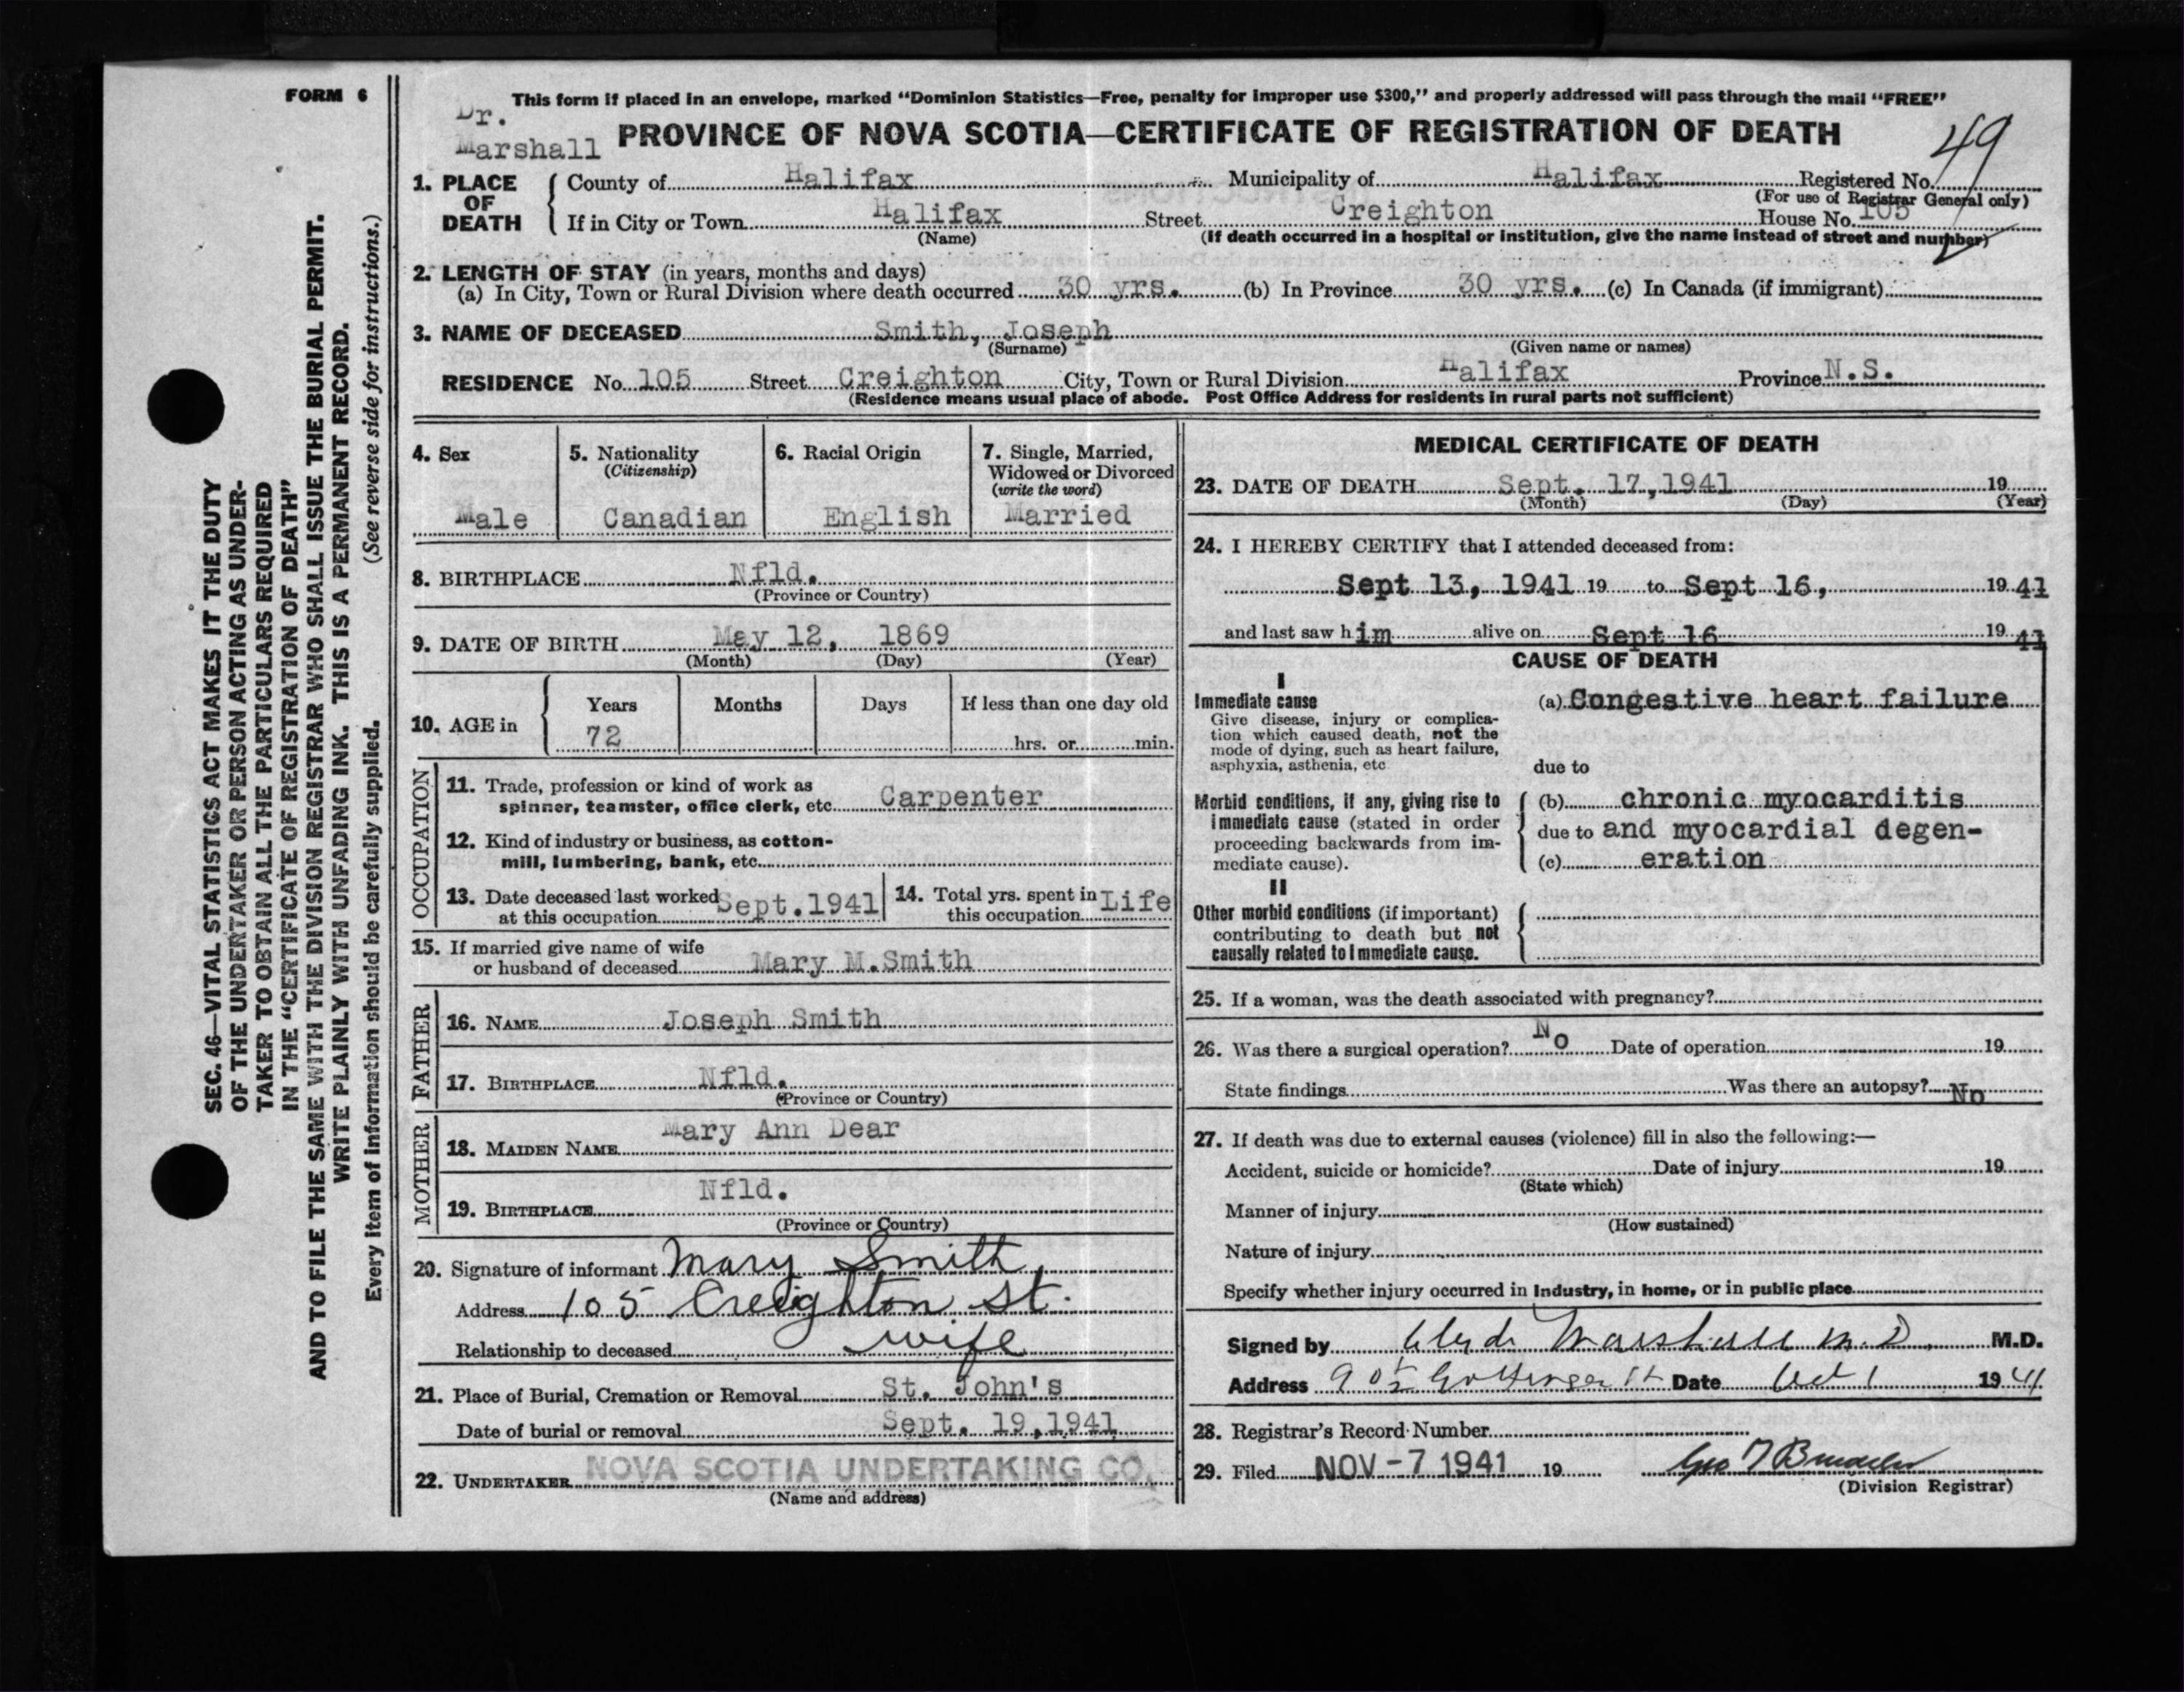 FORM 6
This form if placed in an envelope, marked “Dominion Statistics—Free, penalty for improper use $300,” and properly addressed will pass through the mail “FREE”
Dr.
Marshall
PROVINCE OF NOVA SCOTIA—CERTIFICATE OF REGISTRATION OF DEATH
49
1. PLACE OF DEATH
County of Halifax Municipality of Halifax Registered No.
(For use of Registrar General only)
If in City or Town Halifax Street Creighton House No. 105
(Name) (If death occurred in a hospital or institution, give the name instead of street and number)
2. LENGTH OF STAY (in years, months and days)
(a) In City, Town or Rural Division where death occurred 30 yrs. (b) In Province 30 yrs. (c) In Canada (if immigrant)
3. NAME OF DECEASED Smith, Joseph
(Surname) (Given name or names)
RESIDENCE No. 105 Street Creighton City, Town or Rural Division Halifax Province N.S.
(Residence means usual place of abode. Post Office Address for residents in rural parts not sufficient)
4. Sex
Male
5. Nationality
(Citizenship)
Canadian
6. Racial Origin
English
7. Single, Married,
Widowed or Divorced
(write the word)
Married
8. BIRTHPLACE Nfld.
(Province or Country)
9. DATE OF BIRTH May 12, 1869
(Month) (Day) (Year)
10. AGE in
Years Months Days If less than one day old
72 hrs. or min.
OCCUPATION
11. Trade, profession or kind of work as
spinner, teamster, office clerk, etc. Carpenter
12. Kind of industry or business, as cotton-
mill, lumbering, bank, etc.
13. Date deceased last worked
at this occupation Sept.1941
14. Total yrs. spent in
this occupation Life
15. If married give name of wife
or husband of deceased Mary M.Smith
FATHER
16. NAME Joseph Smith
17. BIRTHPLACE Nfld.
(Province or Country)
MOTHER
18. MAIDEN NAME Mary Ann Dear
19. BIRTHPLACE Nfld.
(Province or Country)
20. Signature of informant Mary Smith
Address 105 Creighton St.
Relationship to deceased wife
21. Place of Burial, Cremation or Removal St. John's
Date of burial or removal Sept. 19,1941
22. UNDERTAKER NOVA SCOTIA UNDERTAKING CO.
(Name and address)
MEDICAL CERTIFICATE OF DEATH
23. DATE OF DEATH Sept. 17,1941 19
(Month) (Day) (Year)
24. I HEREBY CERTIFY that I attended deceased from:
Sept 13, 1941 19 to Sept 16, 19 41
and last saw him alive on Sept 16 19 41
CAUSE OF DEATH
I
Immediate cause
Give disease, injury or complica-
tion which caused death, not the
mode of dying, such as heart failure,
asphyxia, asthenia, etc
(a) Congestive heart failure
due to
Morbid conditions, if any, giving rise to
immediate cause (stated in order
proceeding backwards from im-
mediate cause).
(b) chronic myocarditis
due to and myocardial degen-
(c) eration
II
Other morbid conditions (if important)
contributing to death but not
causally related to immediate cause.
25. If a woman, was the death associated with pregnancy?
26. Was there a surgical operation? No Date of operation 19
State findings Was there an autopsy? No
27. If death was due to external causes (violence) fill in also the following:—
Accident, suicide or homicide? Date of injury 19
(State which)
Manner of injury
(How sustained)
Nature of injury
Specify whether injury occurred in Industry, in home, or in public place
Signed by Clyde Marshall M.D. M.D.
Address Gottingen St Date Oct 1 19 41
28. Registrar's Record Number
29. Filed NOV -7 1941 19
(Division Registrar)
SEC. 46—VITAL STATISTICS ACT MAKES IT THE DUTY
OF THE UNDERTAKER OR PERSON ACTING AS UNDER-
TAKER TO OBTAIN ALL THE PARTICULARS REQUIRED
IN THE “CERTIFICATE OF REGISTRATION OF DEATH”
AND TO FILE THE SAME WITH THE DIVISION REGISTRAR WHO SHALL ISSUE THE BURIAL PERMIT.
WRITE PLAINLY WITH UNFADING INK. THIS IS A PERMANENT RECORD.
Every item of information should be carefully supplied. (See reverse side for instructions.)